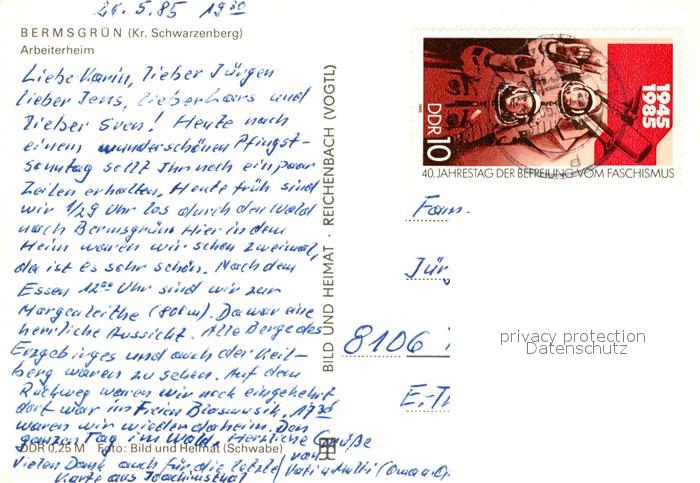 26.5.85 19³⁰
BERMSGRÜN (Kr. Schwarzenberg)
Arbeiterheim
Liebe Karin, lieber Jürgen
lieber Jens, lieber Lars und
lieber Sven! Heute nach
einem wunderschönen Pfingst-
sonntag sollt Ihr noch ein paar
Zeilen erhalten. Heute früh sind
wir 1/2 9 Uhr los durch den Wald
nach Bermsgrün. Hier in dem
Heim waren wir schon zweimal,
da ist es sehr schön. Nach dem
Essen 12⁰⁰ Uhr sind wir zur
Morgenleithe (800m). Da war eine
herrliche Aussicht. Alle Berge des
Erzgebirges und auch der Keil-
berg waren zu sehen. Auf dem
Rückweg waren wir noch eingekehrt
dort war im Freien Blasmusik, 17³⁰
waren wir wieder daheim. Den
ganzen Tag im Wald. Herzliche Grüße
DDR 0,25 M Foto: Bild und Heimat (Schwabe)
Vielen Dank auch für die letzte von
Karte aus Joachimsthal Vati u. Mutti (Oma u. O
BILD UND HEIMAT · REICHENBACH (VOGTL)
DDR 10
1945
1985
1985
40. JAHRESTAG DER BEFREIUNG VOM FASCHISMUS
Fam.
Jürg
8106
E.-Th
privacy protection
Datenschutz